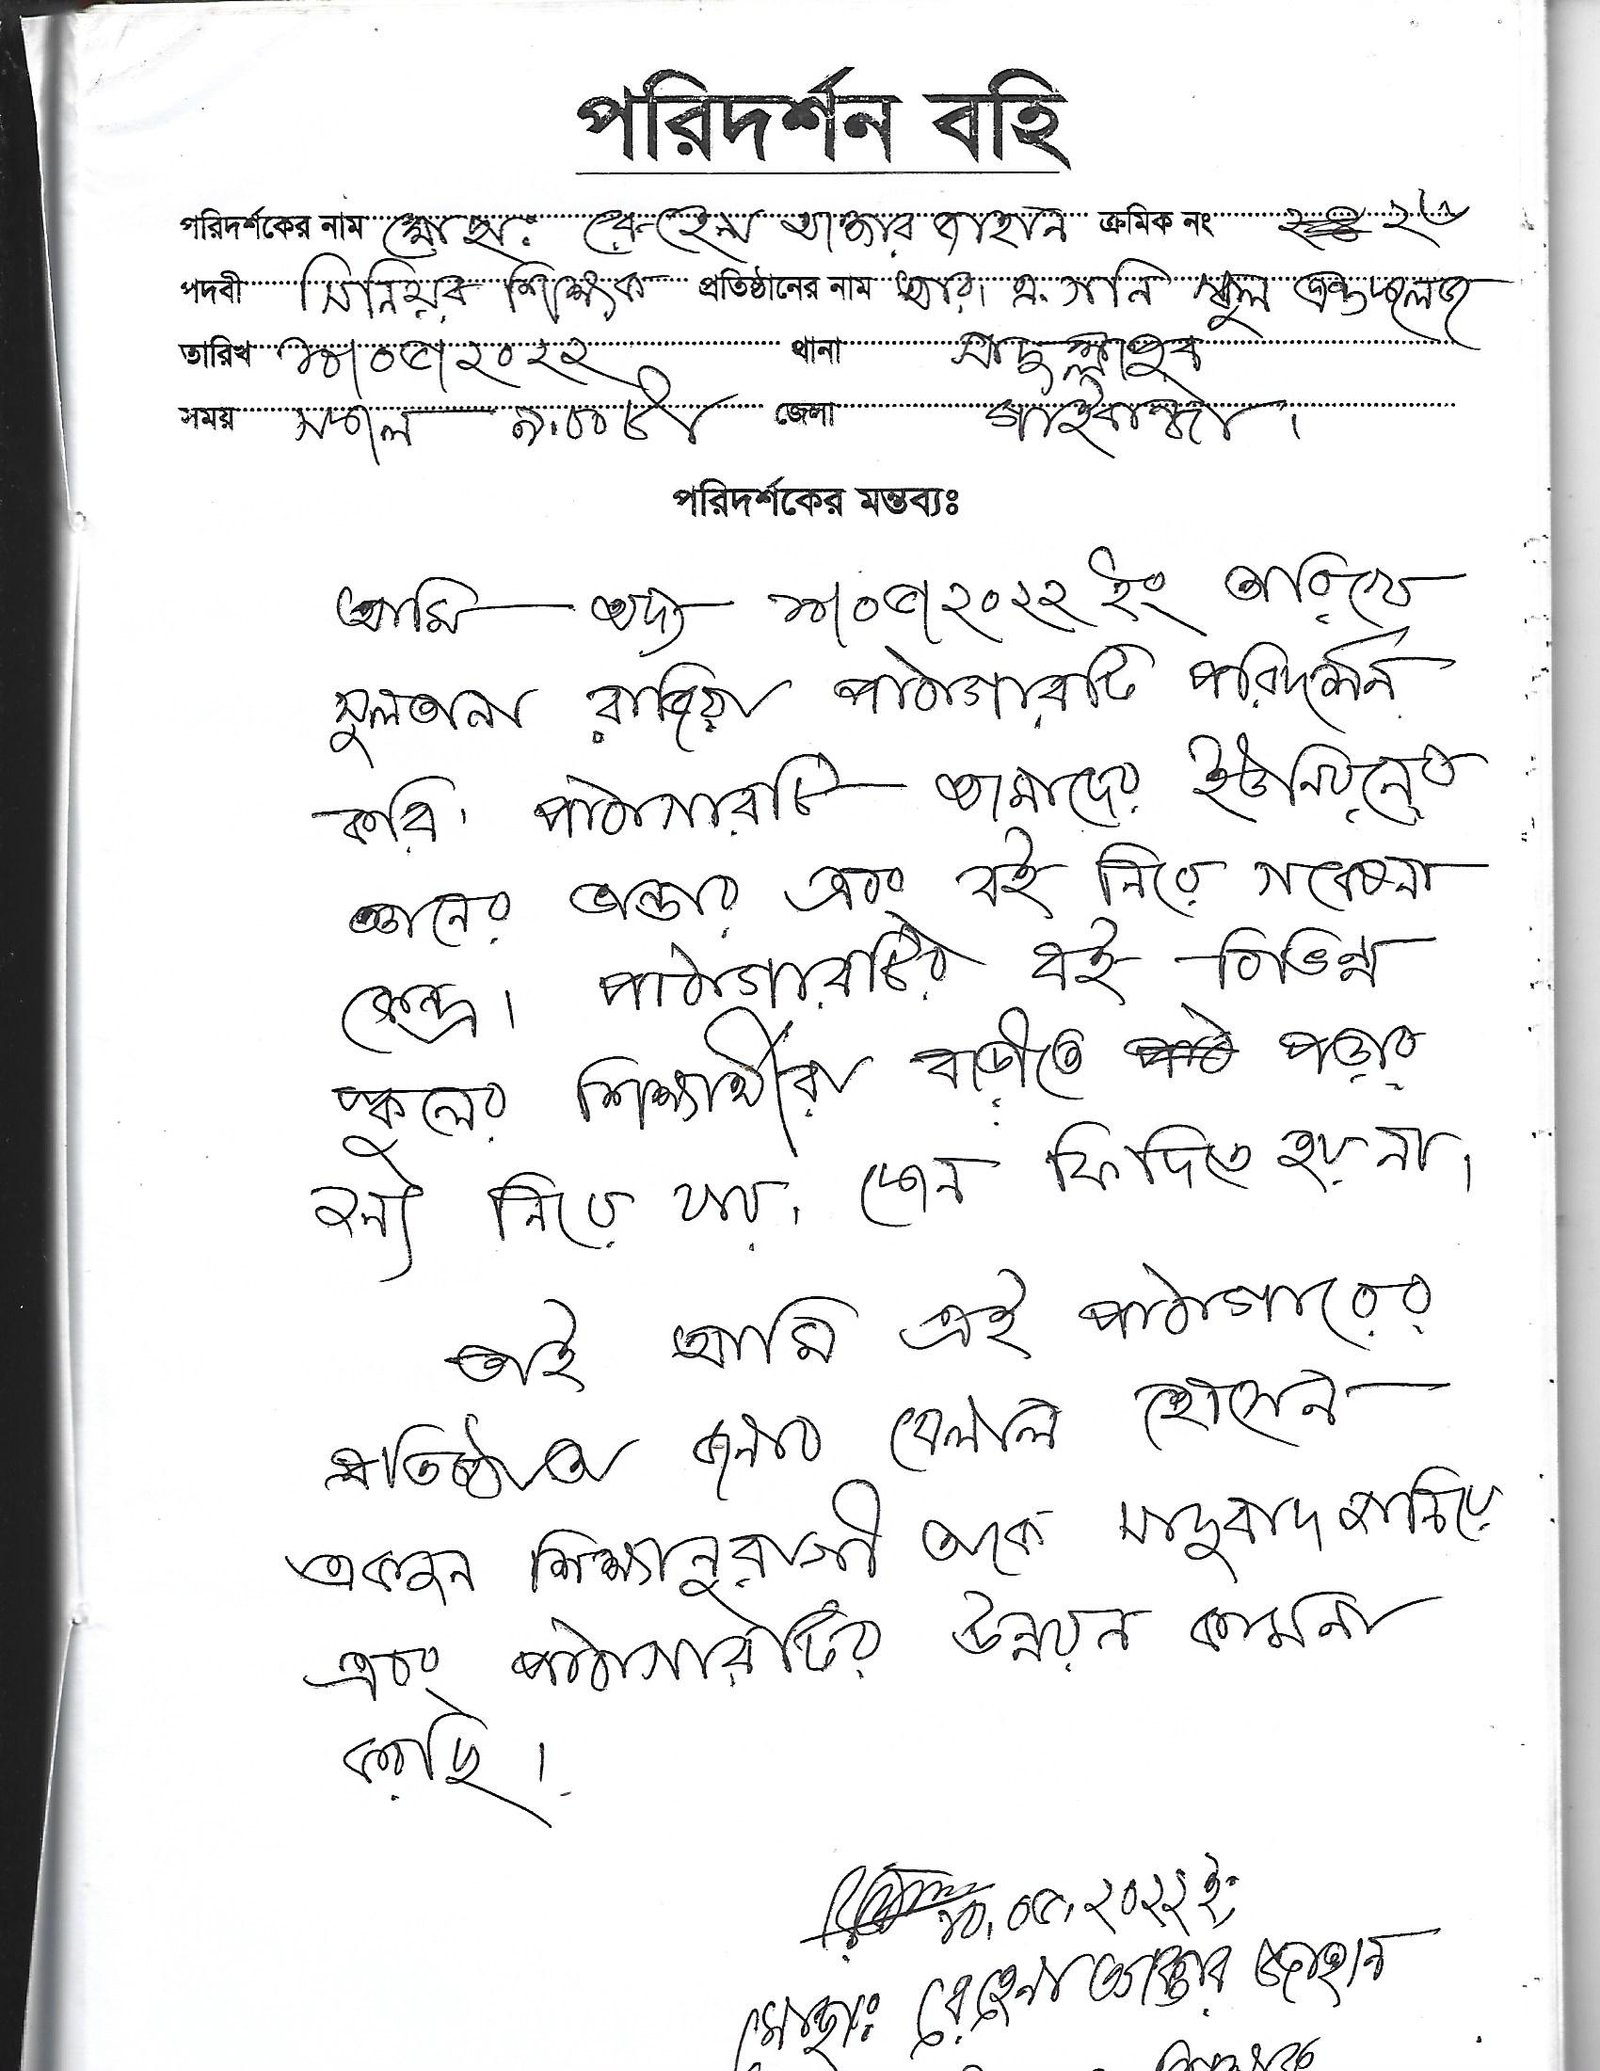 পরিদর্শন বহি
পরিদর্শকের নাম মোছা: রেহেনা আক্তার জাহান ক্রমিক নং ২৬
পদবী সিনিয়র শিক্ষক প্রতিষ্ঠানের নাম আর এ গনি স্কুল এন্ড কলেজ
তারিখ ২০২২ থানা সাদুল্লাপুর
সময় সকাল ৯.০০টা জেলা গাইবান্ধা।
পরিদর্শকের মন্তব্যঃ
আমি অদ্য ২০২২ ইং তারিখে
সুলতানা রাজিয়া পাঠাগারটি পরিদর্শন
করি। পাঠাগারটি আমাদের ইউনিয়নের
জ্ঞানের ভান্ডার এবং বই নিয়ে গবেষনা
কেন্দ্র। পাঠাগারটির বই বিভিন্ন
স্কুলের শিক্ষার্থীরা বাড়ীতে পড়ার
জন্য নিয়ে যায়। কোন ফি দিতে হয় না।
তাই আমি এই পাঠাগারের
প্রতিষ্ঠাতা জনাব বেলাল হোসেন
একজন শিক্ষানুরাগী তাকে সাধুবাদ জানিয়ে
এবং পাঠাগারটির উন্নয়ন কামনা
করছি।
২০২২ ইং
মোছা: রেহেনা আক্তার জাহান